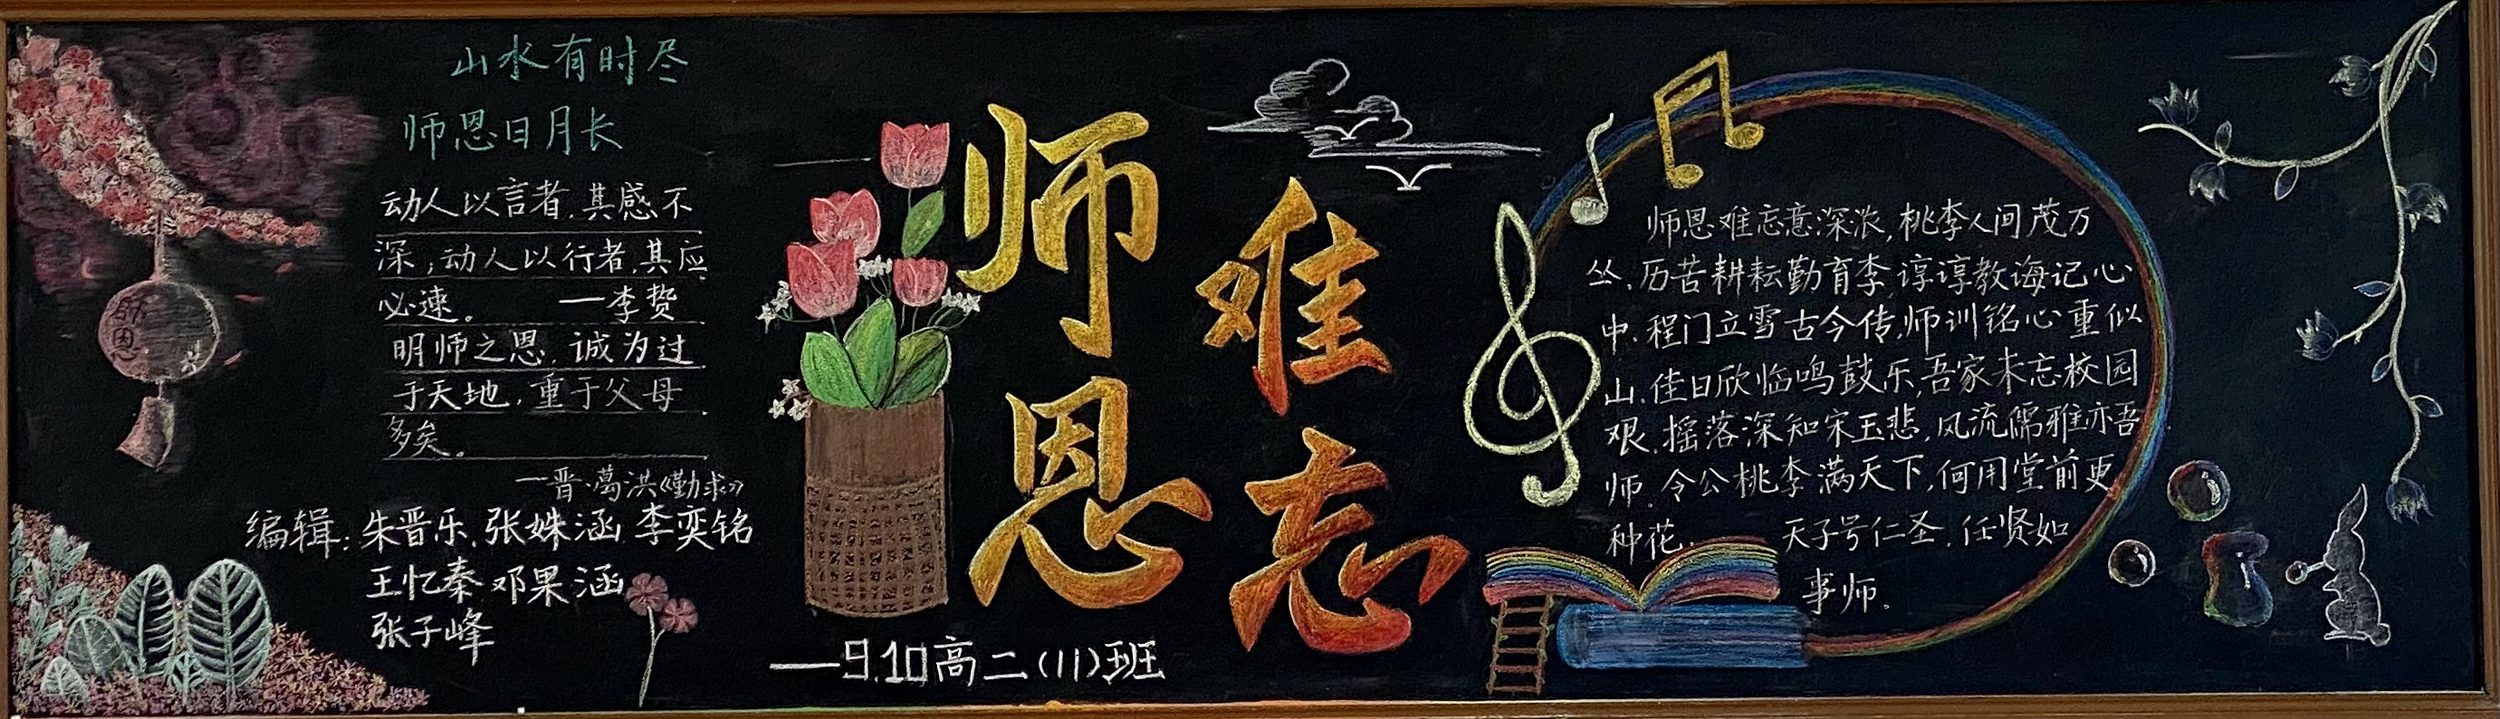 山水有时尽
师恩日月长
动人以言者,其感不
深;动人以行者,其应
必速。 —李贽
明师之恩,诚为过
于天地,重于父母
多矣。
—晋·葛洪《勤求》
编辑:朱晋乐.张姝涵 李奕铭
王忆秦 邓果涵
张子峰
师恩
师恩
难忘
—9.10高二(11)班
师恩难忘意深浓,桃李人间茂万
丛.历苦耕耘勤育李,谆谆教诲记心
中.程门立雪古今传,师训铭心重似
山.佳日欣临鸣鼓乐,吾家未忘校园
艰.摇落深知宋玉悲,风流儒雅亦吾
师.令公桃李满天下,何用堂前更
种花.
天子号仁圣,任贤如
事师。